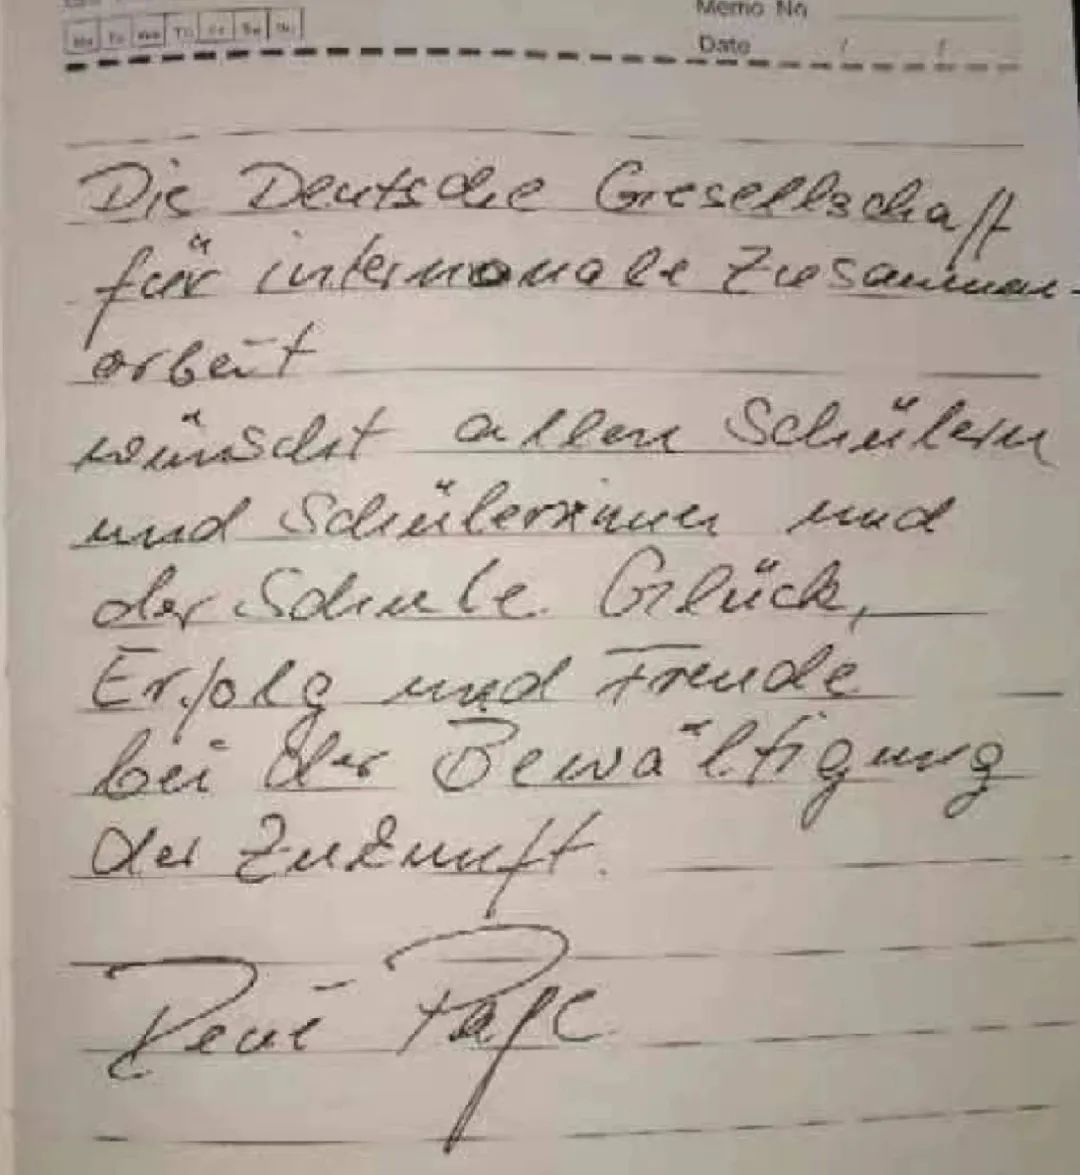 Memo No
Mo Tu We Th Fr Sa Su
Date / /
Die Deutsche Gesellschaft
für internationale Zusammen-
arbeit
wünscht allen Schülern
und Schülerinnen und
der Schule Glück,
Erfolg und Freude
bei der Bewältigung
der Zukunft.
René Pape